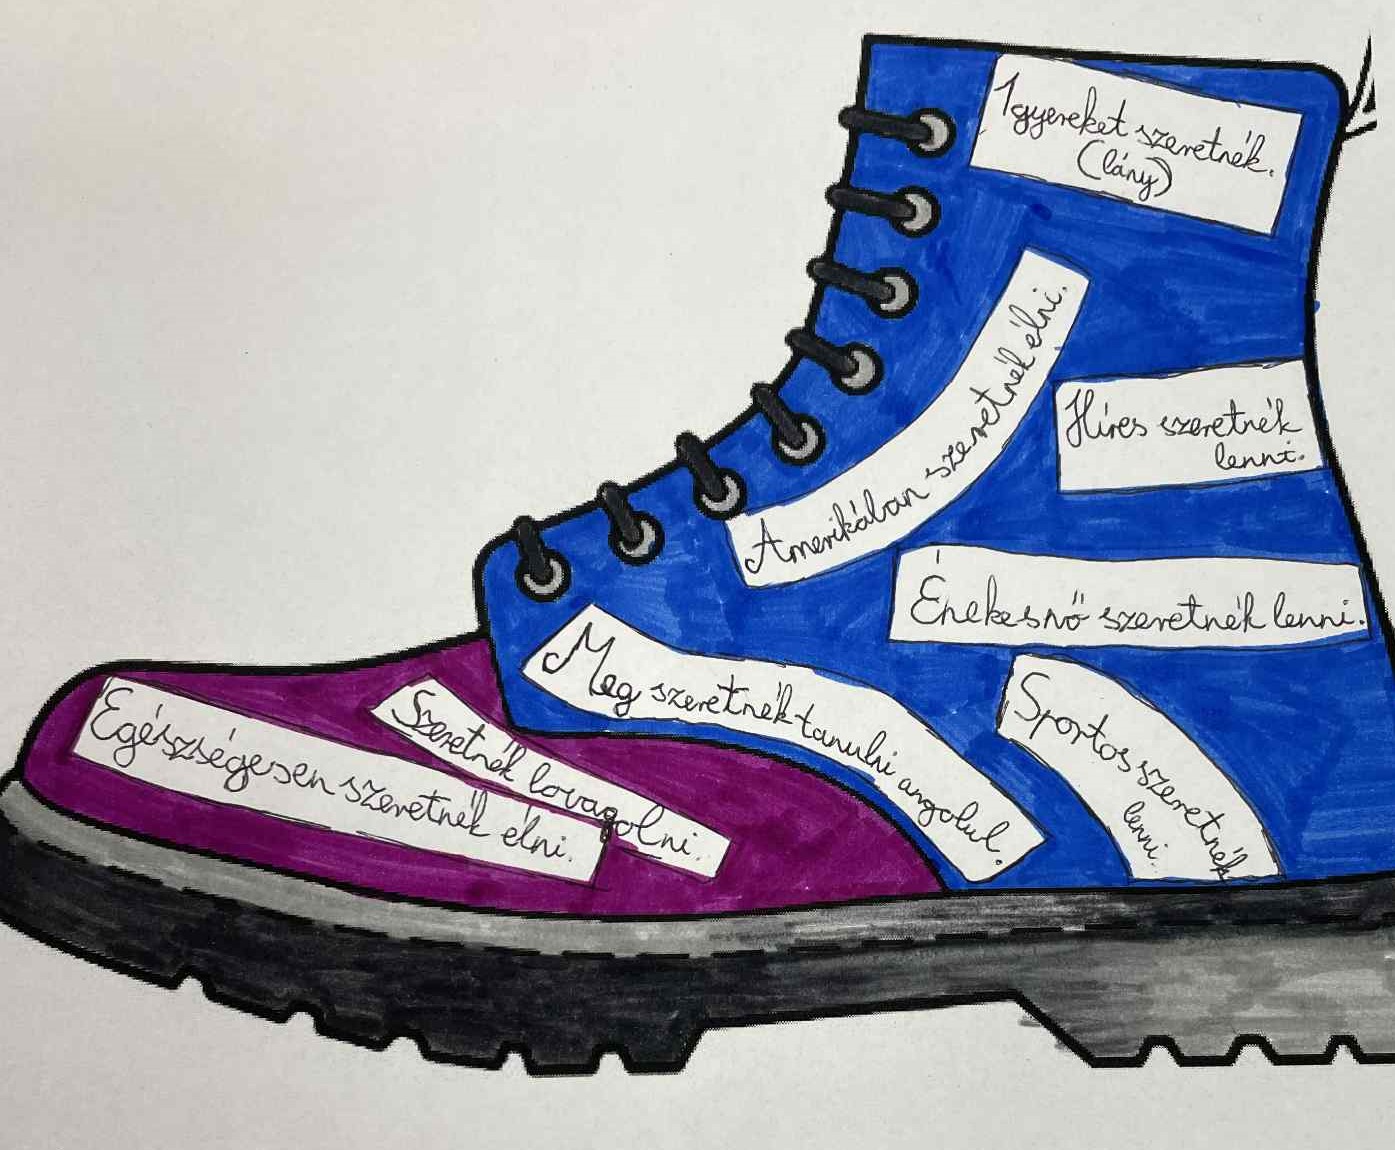 1 gyereket szeretnék.
(lány)
Amerikában szeretnék élni.
Híres szeretnék
lenni.
Énekesnő szeretnék lenni.
Meg szeretnék tanulni angolul.
Sportos szeretnék
lenni.
Szeretnék lovagolni.
Egészségesen szeretnék élni.